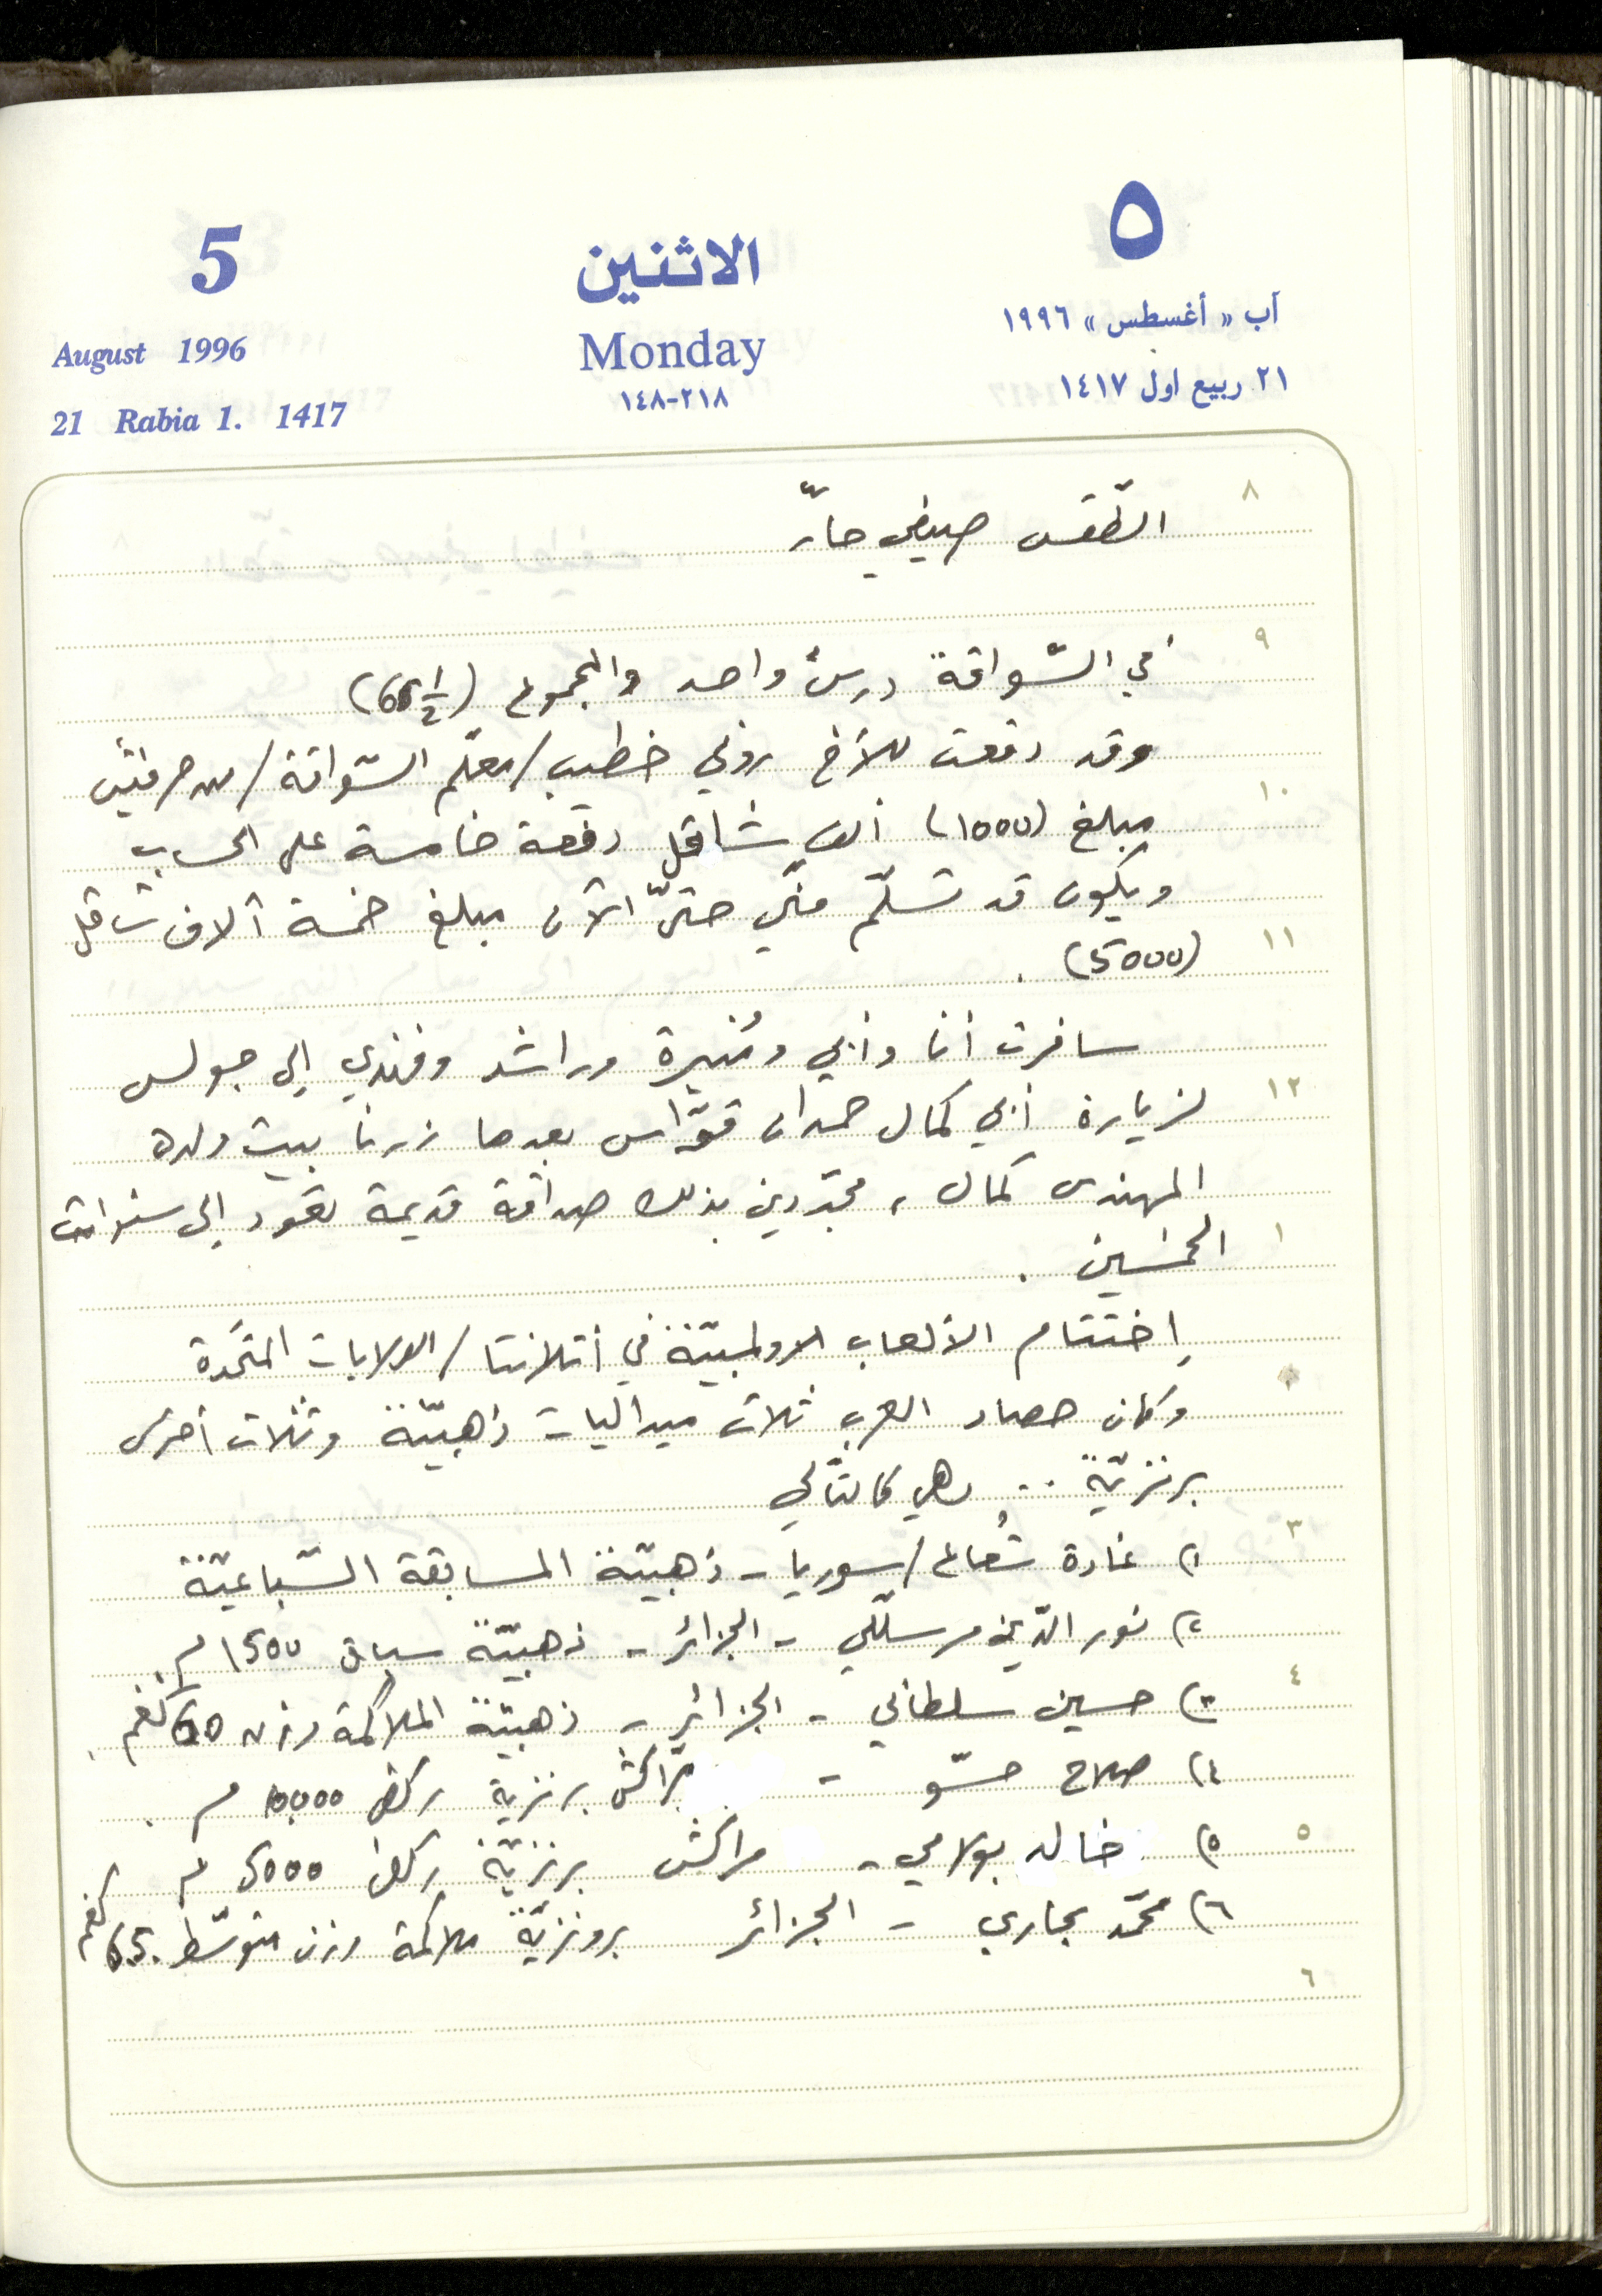 5
الاثنين
٥
August 1996
Monday
آب « أغسطس » ١٩٩٦
21 Rabia 1. 1417
٢١٨-١٤٨
٢١ ربيع اول ١٤١٧
٨
الطّقس صيفي حارّ
٩
في السّواقة درسٌ واحد والمجموع (66½)
وقد دفعت للأخ روني خطيب/معلّم السّواقة/من حرفيش
١٠
مبلغ (1000) ألف شاقل دفعة خامسة على الحساب
ويكون قد تسلّم منّي حتّى الآن مبلغ خمسة آلاف شاقل
١١
(5000) .
سافرت أنا وأبي ومُنيرة وراشد وفندي إلى جولس
١٢
لزيارة أبي كمال حمدان قوّاس بعدها زرنا بيت ولده
المهندس كمال ، مجدّدين بذلك صداقة قديمة تعود إلى سنوات
١
الخمسين .
إختتام الألعاب الاولمبيّة في أتلانتا/الولايات المتّحدة
وكان حصاد العرب ثلاث ميداليات ذهبيّة وثلاث أخرى
برنزيّة .. وهي كالتّالي
٣
١) غادة شُعاع/سوريا - ذهبيّة المسابقة السّباعيّة
٢) نور الدّين مرسلّي - الجزائر - ذهبيّة سباق 1500 م.
٤
٣) حسين سلطاني - الجزائر - ذهبيّة الملاكمة وزن 60 كغم.
٤) صلاح حسّو - مرّاكش برنزية ركض 10,000 م .
٥
٥) خالد بولامي - مراكش برنزيّة ركض 5000 م
٦) محمّد بحاري - الجزائر برونزيّة ملاكمة وزن متوسّط 65. كغم
٦